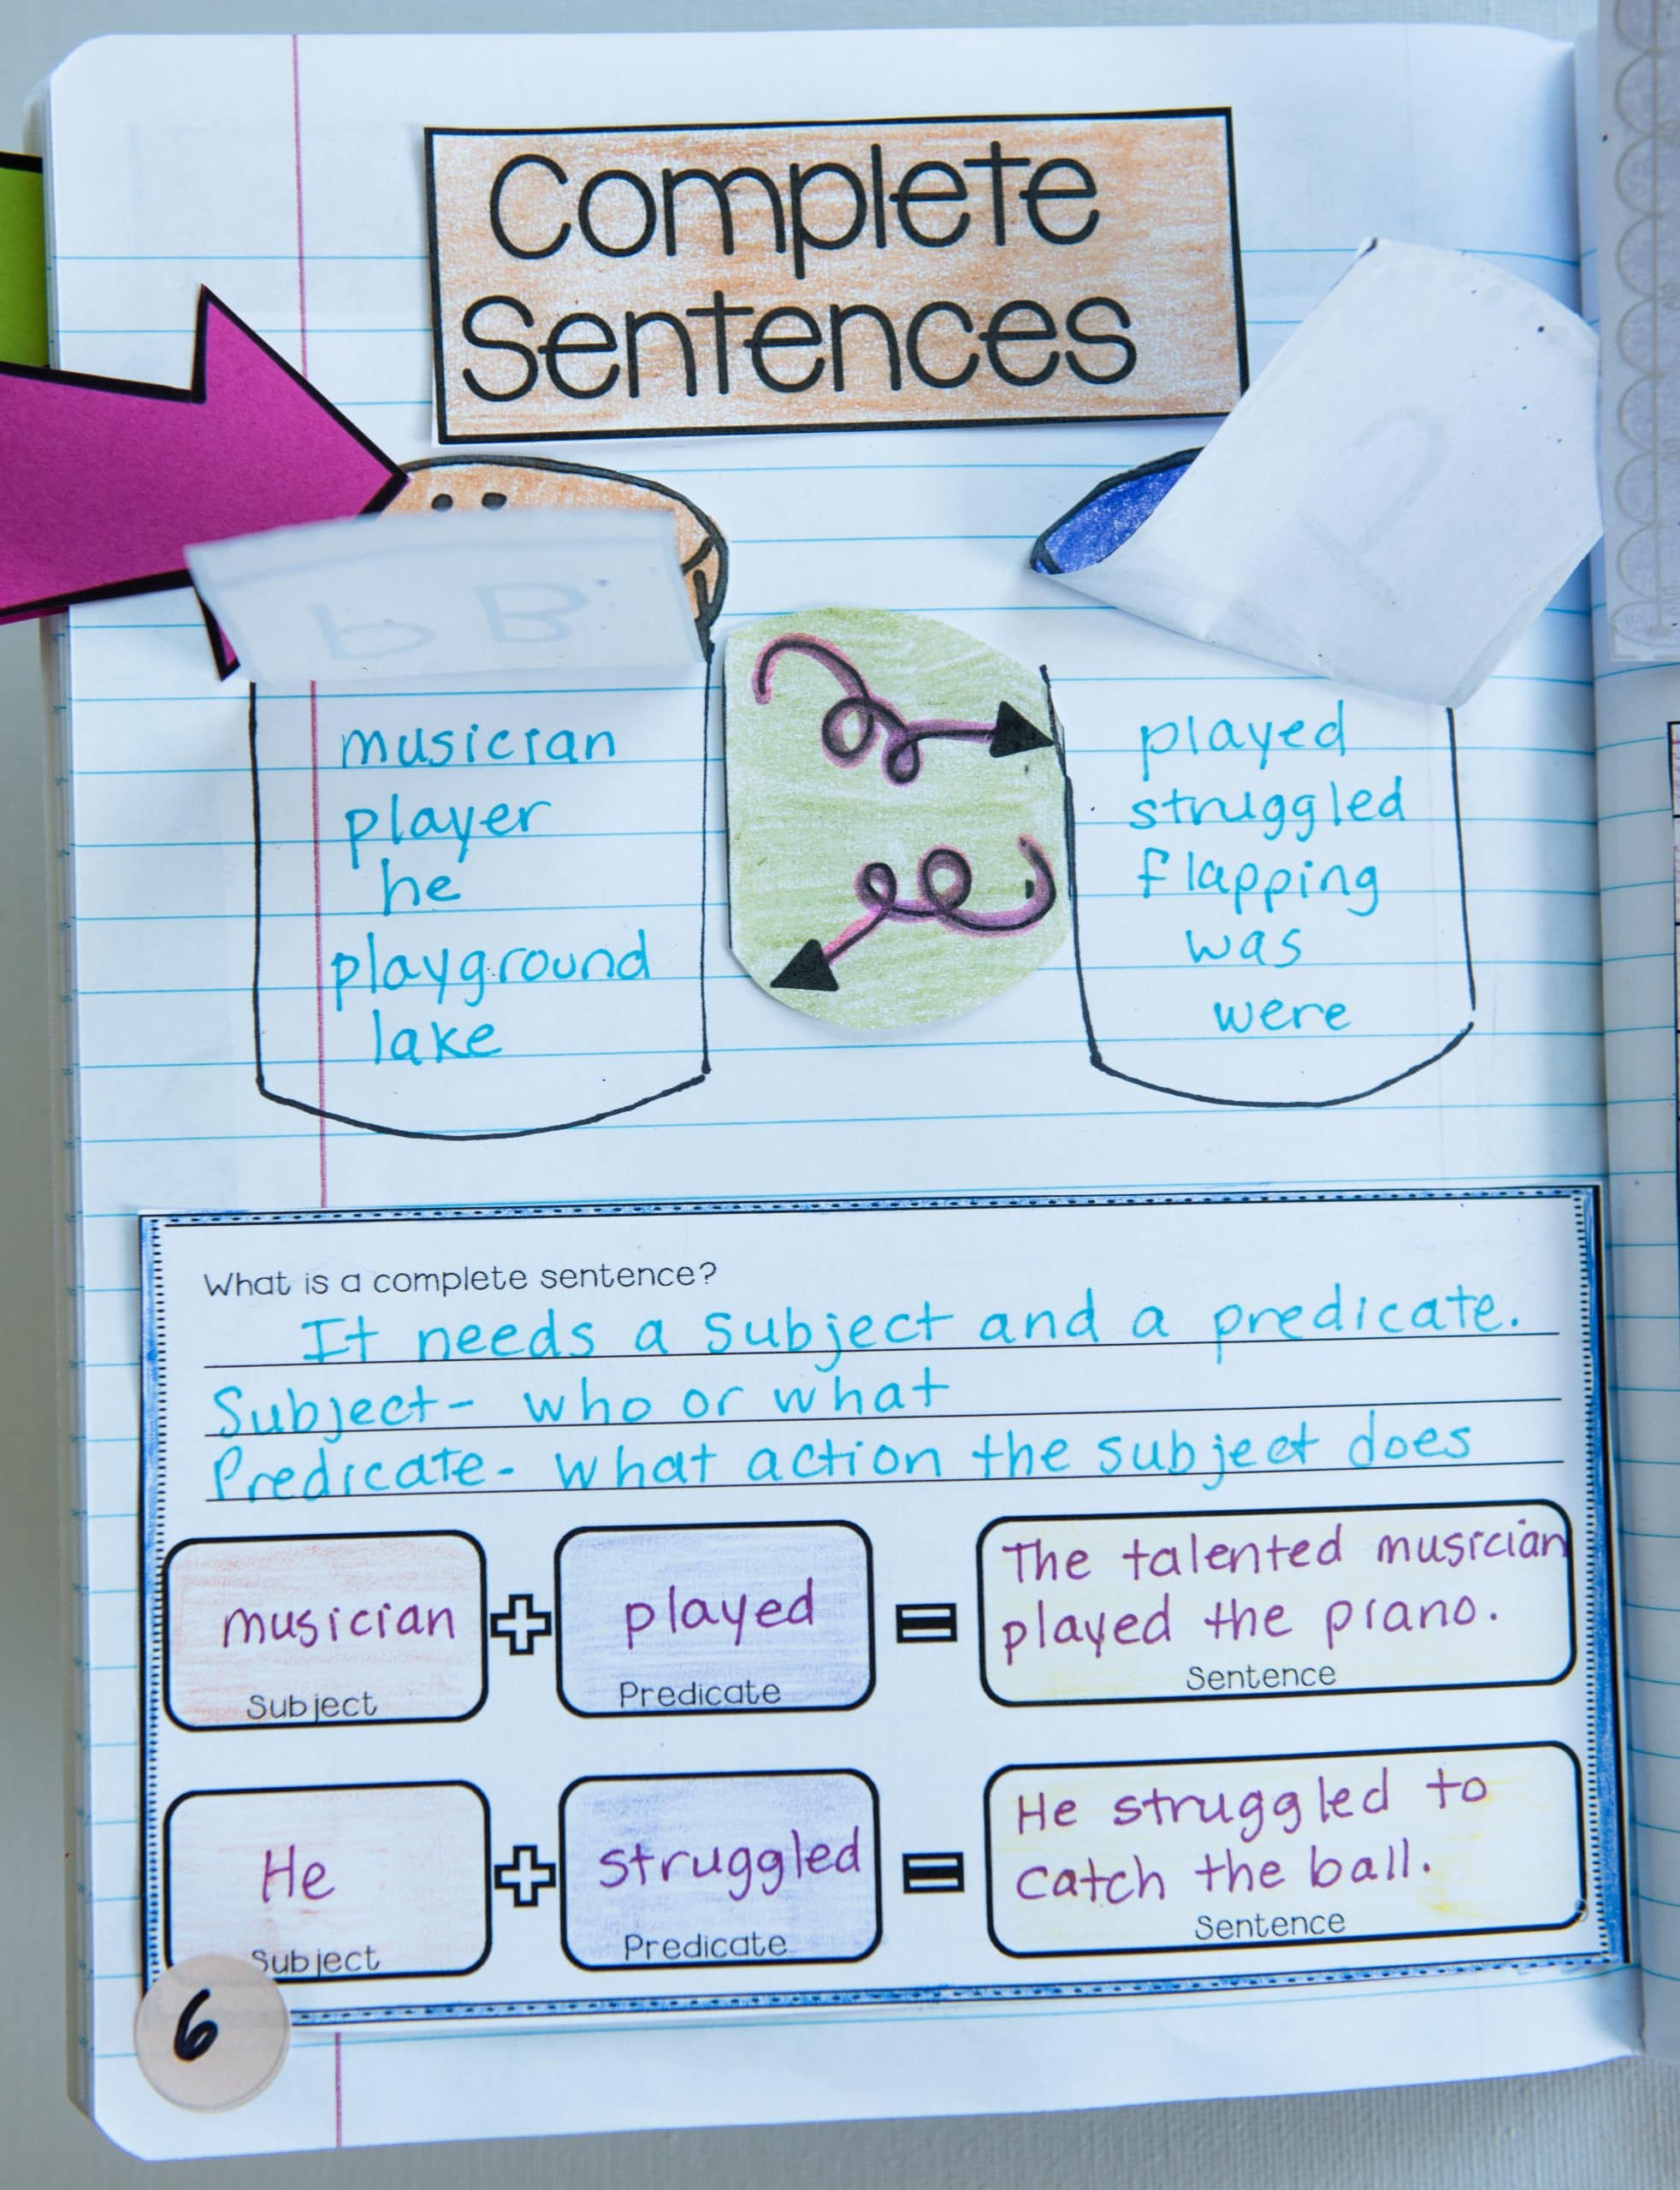 Complete
Sentences
P B
musician
player
he
playground
lake
played
struggled
flapping
was
were
What is a complete sentence?
It needs a subject and a predicate.
Subject- who or what
Predicate- what action the subject does
musician
Subject
+
played
Predicate
=
The talented musician
played the piano.
Sentence
He
Subject
+
struggled
Predicate
=
He struggled to
catch the ball.
Sentence
6